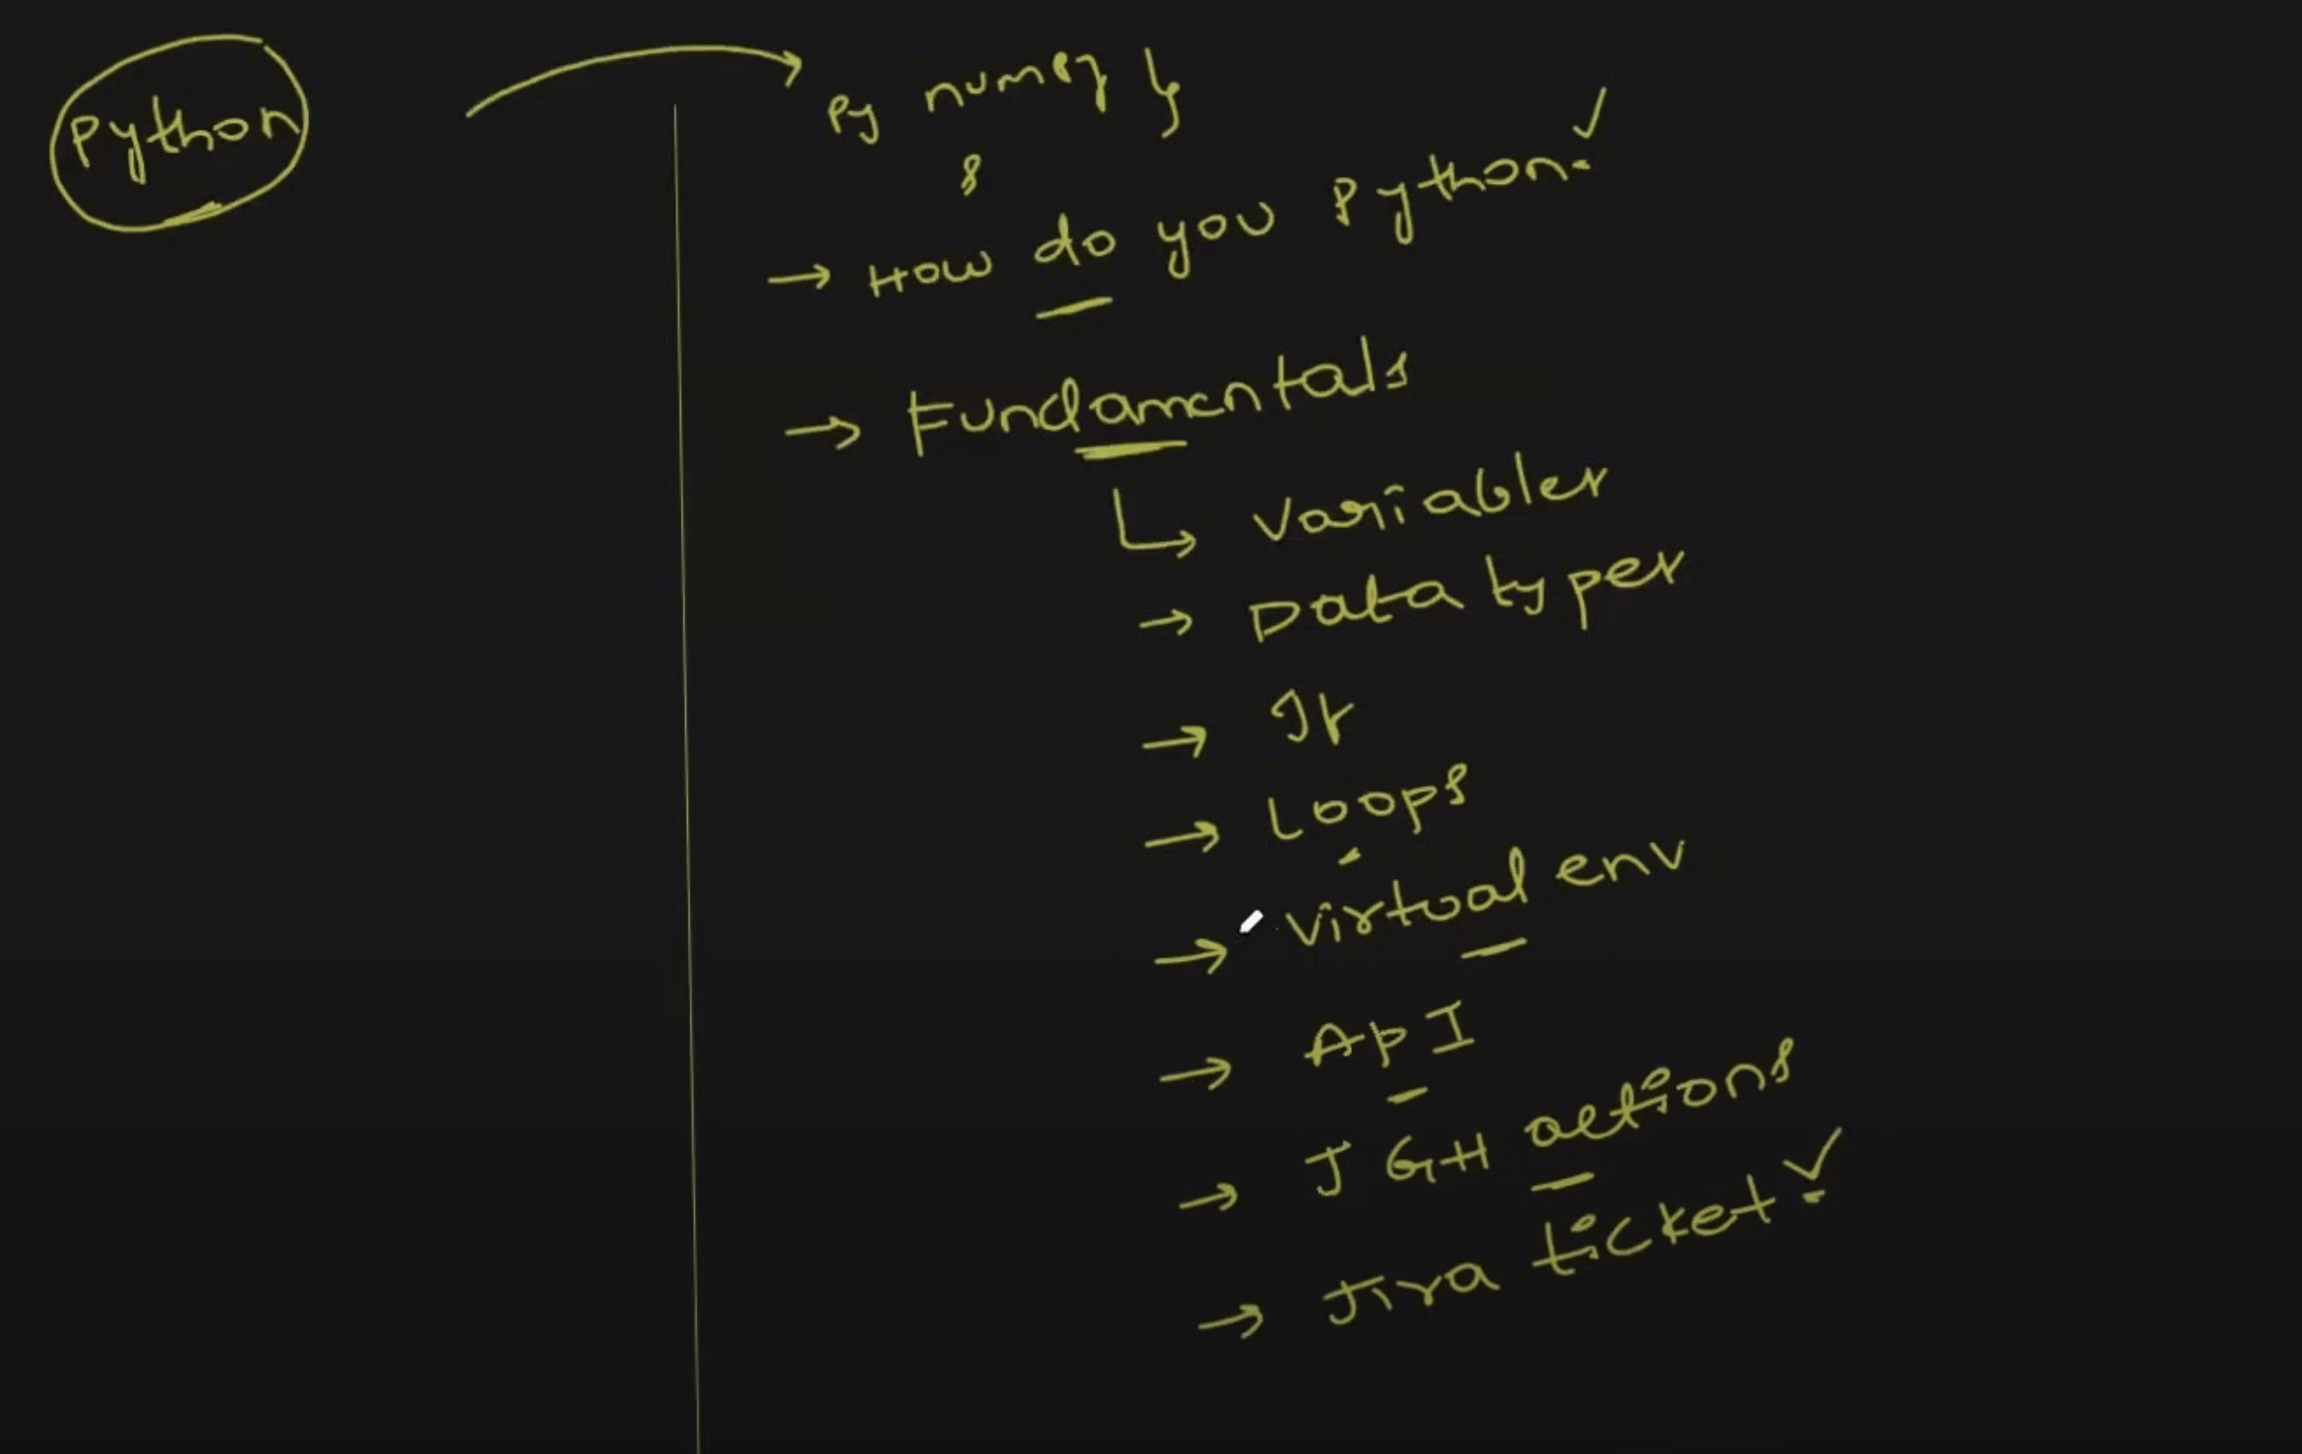 Python
Py
How do you Python.
Fundamentals
Variables
Data types
If
Loops
Virtual env
API
J GH actions
Jira ticket